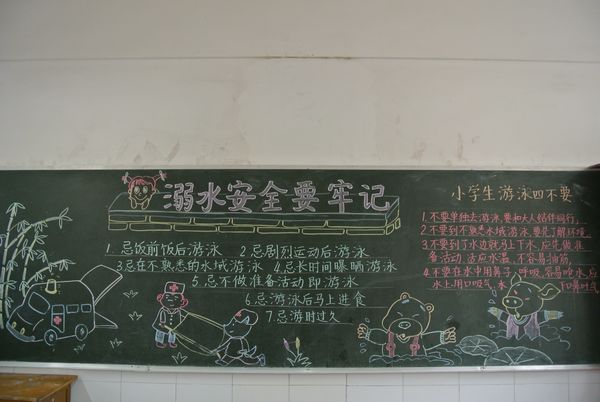 溺水安全要牢记
1.忌饭前饭后游泳 2.忌剧烈运动后游泳
3.忌在不熟悉的水域游泳 4.忌长时间曝晒游泳
5.忌不做准备活动即游泳
6.忌游泳后马上进食
7.忌游时过久
小学生游泳四不要
1.不要单独去游泳,要和大人结伴同行。
2.不要到不熟悉水域游泳,要先了解环境。
3.不要到了水边就马上下水,应先做准
备活动,适应水温,不容易抽筋。
4.不要在水中用鼻子呼吸,容易呛水,应
水上用口吸气,水